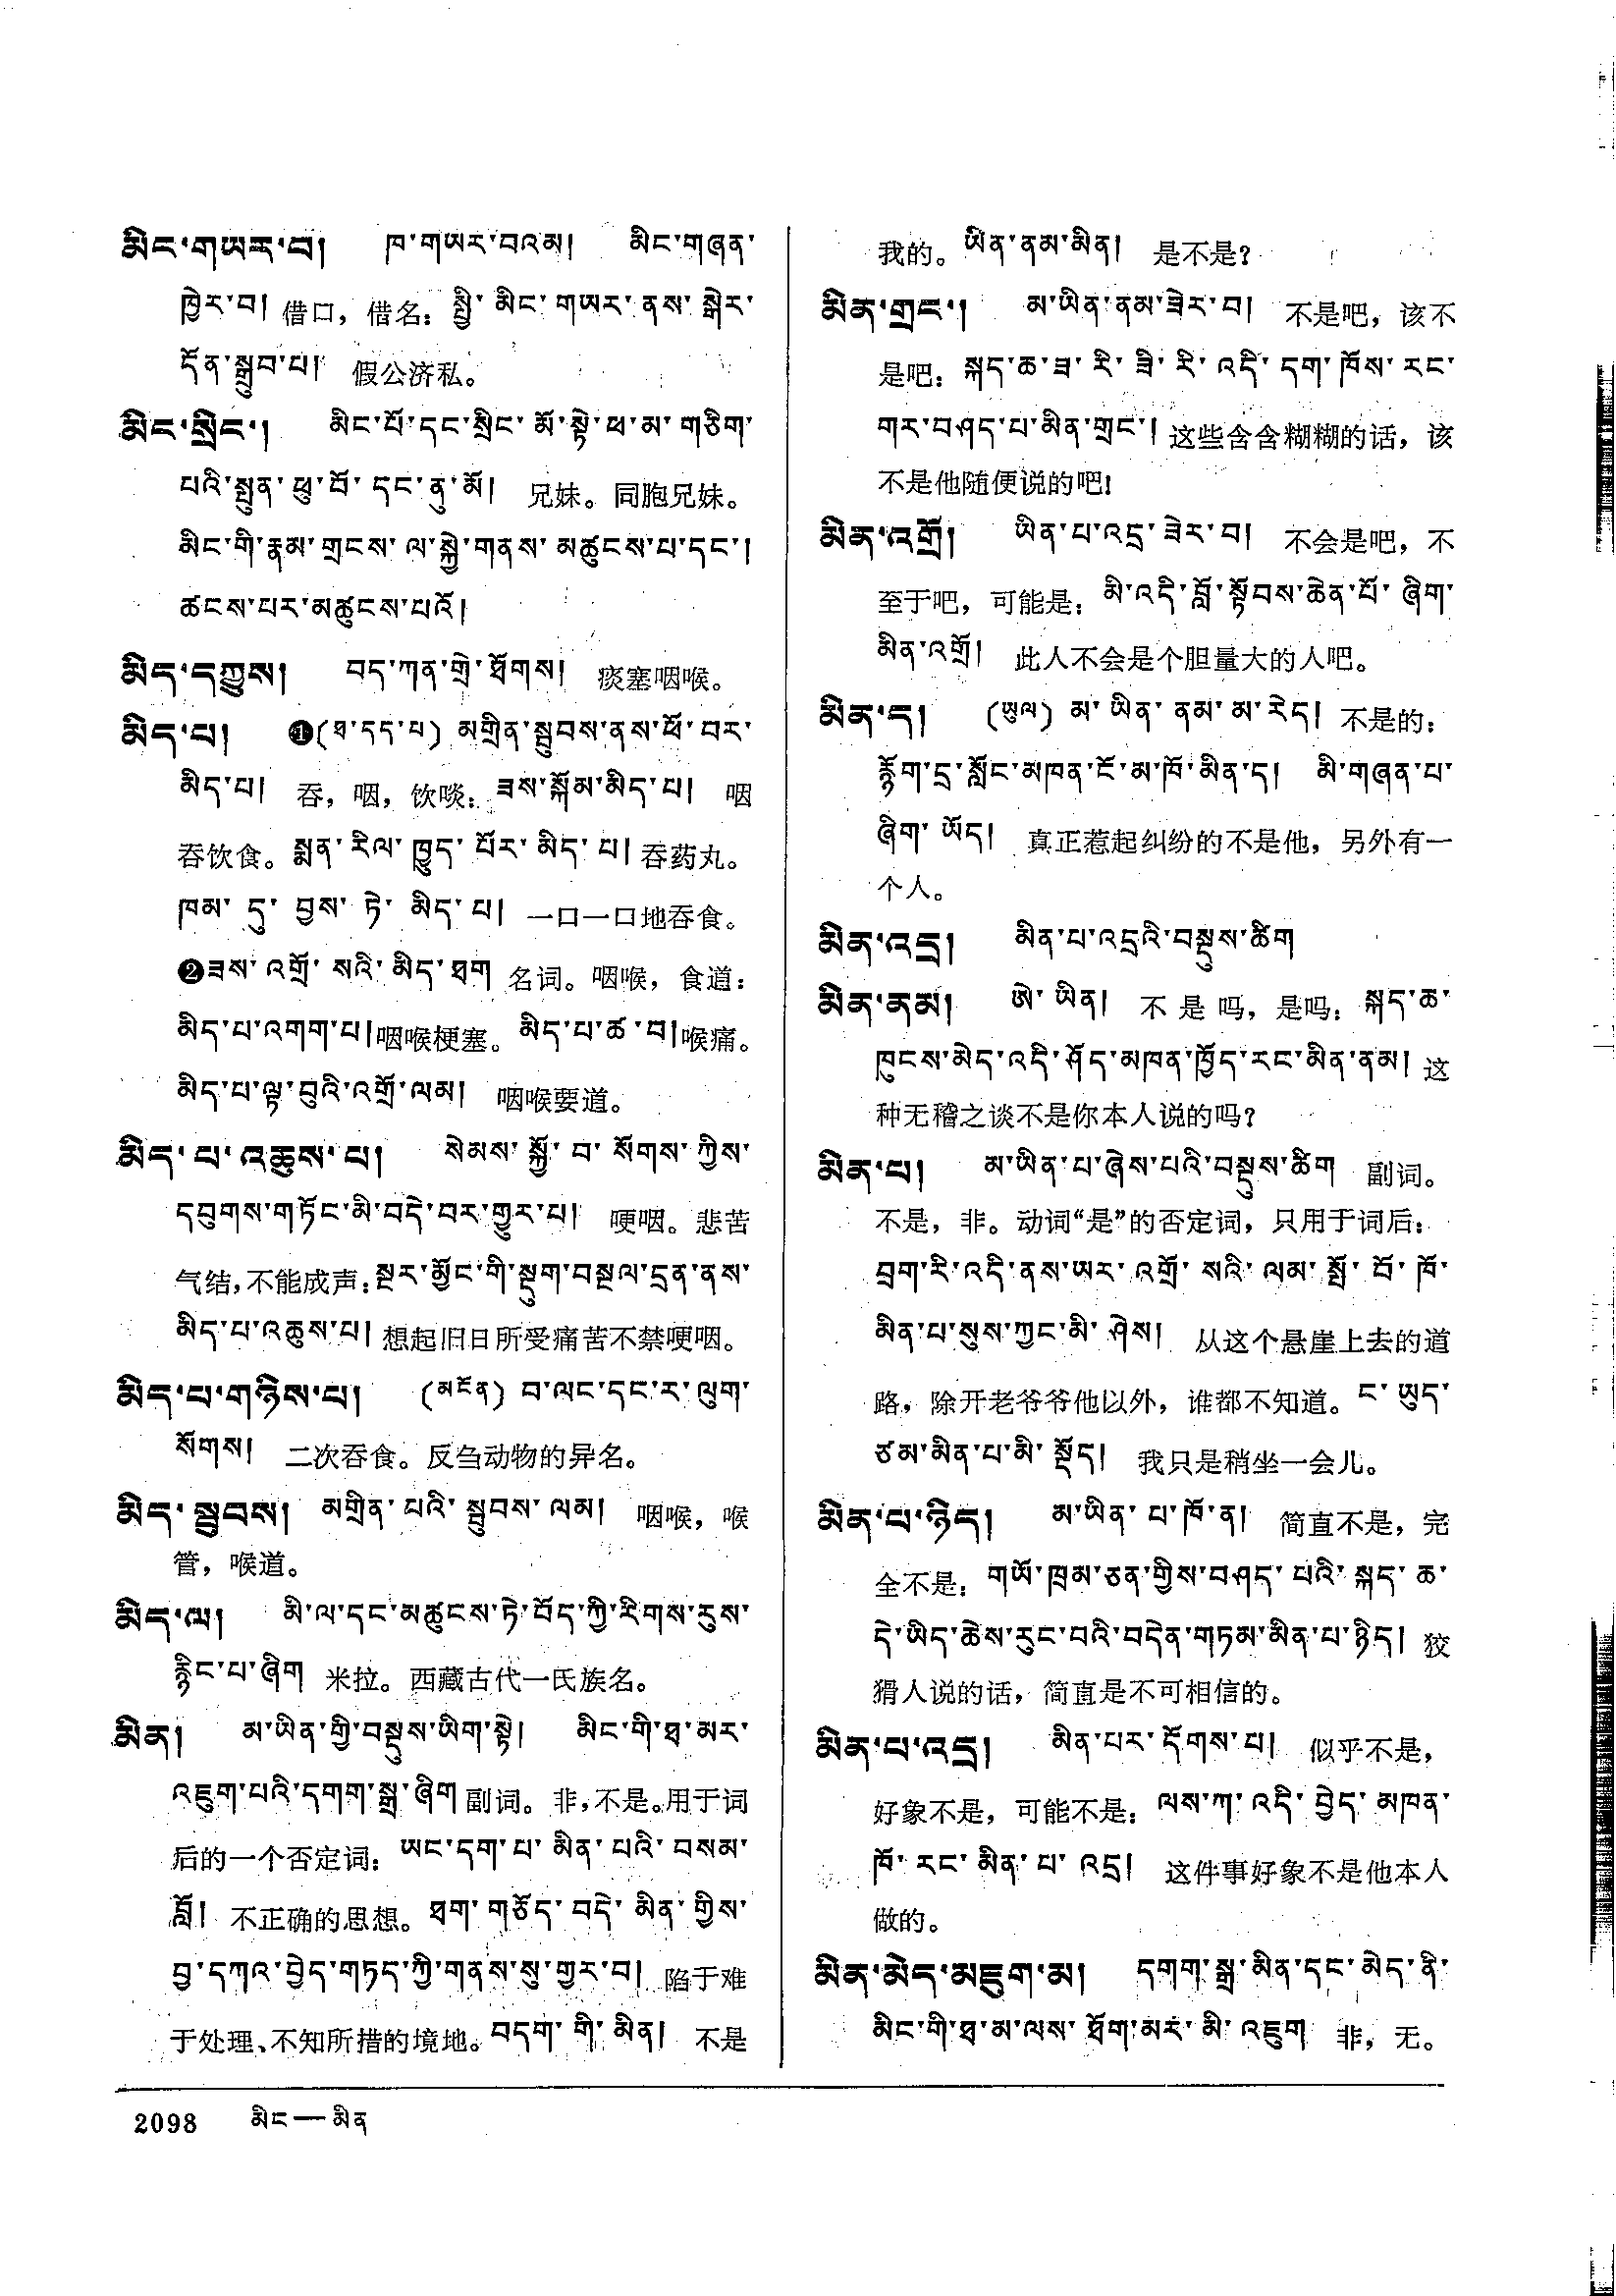 མིང་གཡར་བ། ཁ་གཡར་བའམ། མིང་གཞན་
ཁྱེར་བ། 借口，借名：སྤྱི་མིང་གཡར་ནས་སྒེར་
དོན་སྒྲུབ་པ། 假公济私。
མིང་སྲིང་། མིང་པོ་དང་སྲིང་མོ་སྟེ་ཕ་མ་གཅིག་
པའི་སྤུན་ཕུ་བོ་དང་ནུ་མོ། 兄妹。同胞兄妹。
མིང་གི་རྣམ་གྲངས་ལ་སྐྱེ་གནས་མཚུངས་པ་དང་།
ཚངས་པར་མཚུངས་པའོ།
མིད་དཀྱུས། བད་ཀན་གྲེ་ཐོགས། 痰塞咽喉。
མིད་པ། ❶(ཐ་དད་པ) མགྲིན་སྦུབས་ནས་ཕོ་བར་
མིད་པ། 吞，咽，饮啖：ཟས་སྐོམ་མིད་པ། 咽
吞饮食。སྨན་རིལ་ཁྱུད་པོར་མིད་པ། 吞药丸。
ཁམ་དུ་བྱས་ཏེ་མིད་པ། 一口一口地吞食。
❷ཟས་འགྲོ་སའི་མིད་ཐག 名词。咽喉，食道：
མིད་པ་འགག་པ། 咽喉梗塞。མིད་པ་ཚ་བ། 喉痛。
མིད་པ་ལྟ་བུའི་འགྲོ་ལམ། 咽喉要道。
མིད་པ་འཆུས་པ། སེམས་སྐྱོ་བ་སོགས་ཀྱིས་
དབུགས་གཏོང་མི་བདེ་བར་གྱུར་པ། 哽咽。悲苦
气结，不能成声：སྔར་མྱོང་གི་སྡུག་བསྔལ་དྲན་ནས་
མིད་པ་འཆུས་པ། 想起旧日所受痛苦不禁哽咽。
མིད་པ་གཉིས་པ། (མངོན) བ་ལང་དང་ར་ལུག་
སོགས། 二次吞食。反刍动物的异名。
མིད་སྦུབས། མགྲིན་པའི་སྦུབས་ལམ། 咽喉，喉
管，喉道。
མིད་ལ། མི་ལ་དང་མཚུངས་ཏེ་བོད་ཀྱི་རིགས་རུས་
རྙིང་པ་ཞིག 米拉。西藏古代一氏族名。
མིན། མ་ཡིན་གྱི་བསྡུས་ཡིག་སྟེ། མིང་གི་ཐ་མར་
འཇུག་པའི་དགག་སྒྲ་ཞིག 副词。非，不是。用于词
后的一个否定词：ཡང་དག་པ་མིན་པའི་བསམ་
བློ། 不正确的思想。ཐག་གཅོད་བདེ་མིན་གྱིས་
བྱ་དཀའ་བྱེད་གཏད་ཀྱི་གནས་སུ་གྱར་བ། 陷于难
于处理、不知所措的境地。བདག་གི་མིན། 不是
我的。ཡིན་ནམ་མིན། 是不是？
མིན་གྲང་། མ་ཡིན་ནམ་ཟེར་བ། 不是吧，该不
是吧：སྐད་ཆ་ཟ་རི་ཟི་རི་འདི་དག་ཁོས་རང་
གར་བཤད་པ་མིན་གྲང་། 这些含含糊糊的话，该
不是他随便说的吧！
མིན་འགྲོ། ཡིན་པ་འདྲ་ཟེར་བ། 不会是吧，不
至于吧，可能是：མི་འདི་བློ་སྟོབས་ཆེན་པོ་ཞིག་
མིན་འགྲོ། 此人不会是个胆量大的人吧。
མིན་ད། (ཡུལ) མ་ཡིན་ནམ་མ་རེད། 不是的：
རྙོག་དྲ་སློང་མཁན་ངོ་མ་ཁོ་མིན་ད། མི་གཞན་པ་
ཞིག་ཡོད། 真正惹起纠纷的不是他，另外有一
个人。
མིན་འདྲ། མིན་པ་འདྲའི་བསྡུས་ཚིག
མིན་ནམ། ཨེ་ཡིན། 不是吗，是吗：སྐད་ཆ་
ཁུངས་མེད་འདི་ཤོད་མཁན་ཁྱོད་རང་མིན་ནམ། 这
种无稽之谈不是你本人说的吗？
མིན་པ། མ་ཡིན་པ་ཞེས་པའི་བསྡུས་ཚིག 副词。
不是，非。动词“是”的否定词，只用于词后：
བྲག་རི་འདི་ནས་ཡར་འགྲོ་སའི་ལམ་སྤོ་བོ་ཁོ་
མིན་པ་སུས་ཀྱང་མི་ཤེས། 从这个悬崖上去的道
路，除开老爷爷他以外，谁都不知道。ང་ཡུད་
ཙམ་མིན་པ་མི་སྡོད། 我只是稍坐一会儿。
མིན་པ་ཉིད། མ་ཡིན་པ་ཁོ་ན། 简直不是，完
全不是：གཡོ་ཁྲམ་ཅན་གྱིས་བཤད་པའི་སྐད་ཆ་
དེ་ཡིད་ཆེས་རུང་བའི་བདེན་གཏམ་མིན་པ་ཉིད། 狡
猾人说的话，简直是不可相信的。
མིན་པ་འདྲ། མིན་པར་དོགས་པ། 似乎不是，
好象不是，可能不是：ལས་ཀ་འདི་བྱེད་མཁན་
ཁོ་རང་མིན་པ་འདྲ། 这件事好象不是他本人
做的。
མིན་མེད་མཇུག་མ། དགག་སྒྲ་མིན་དང་མེད་ནི་
མིང་གི་ཐ་མ་ལས་ཐོག་མར་མི་འཇུག 非，无。
2098 མིང—མིན